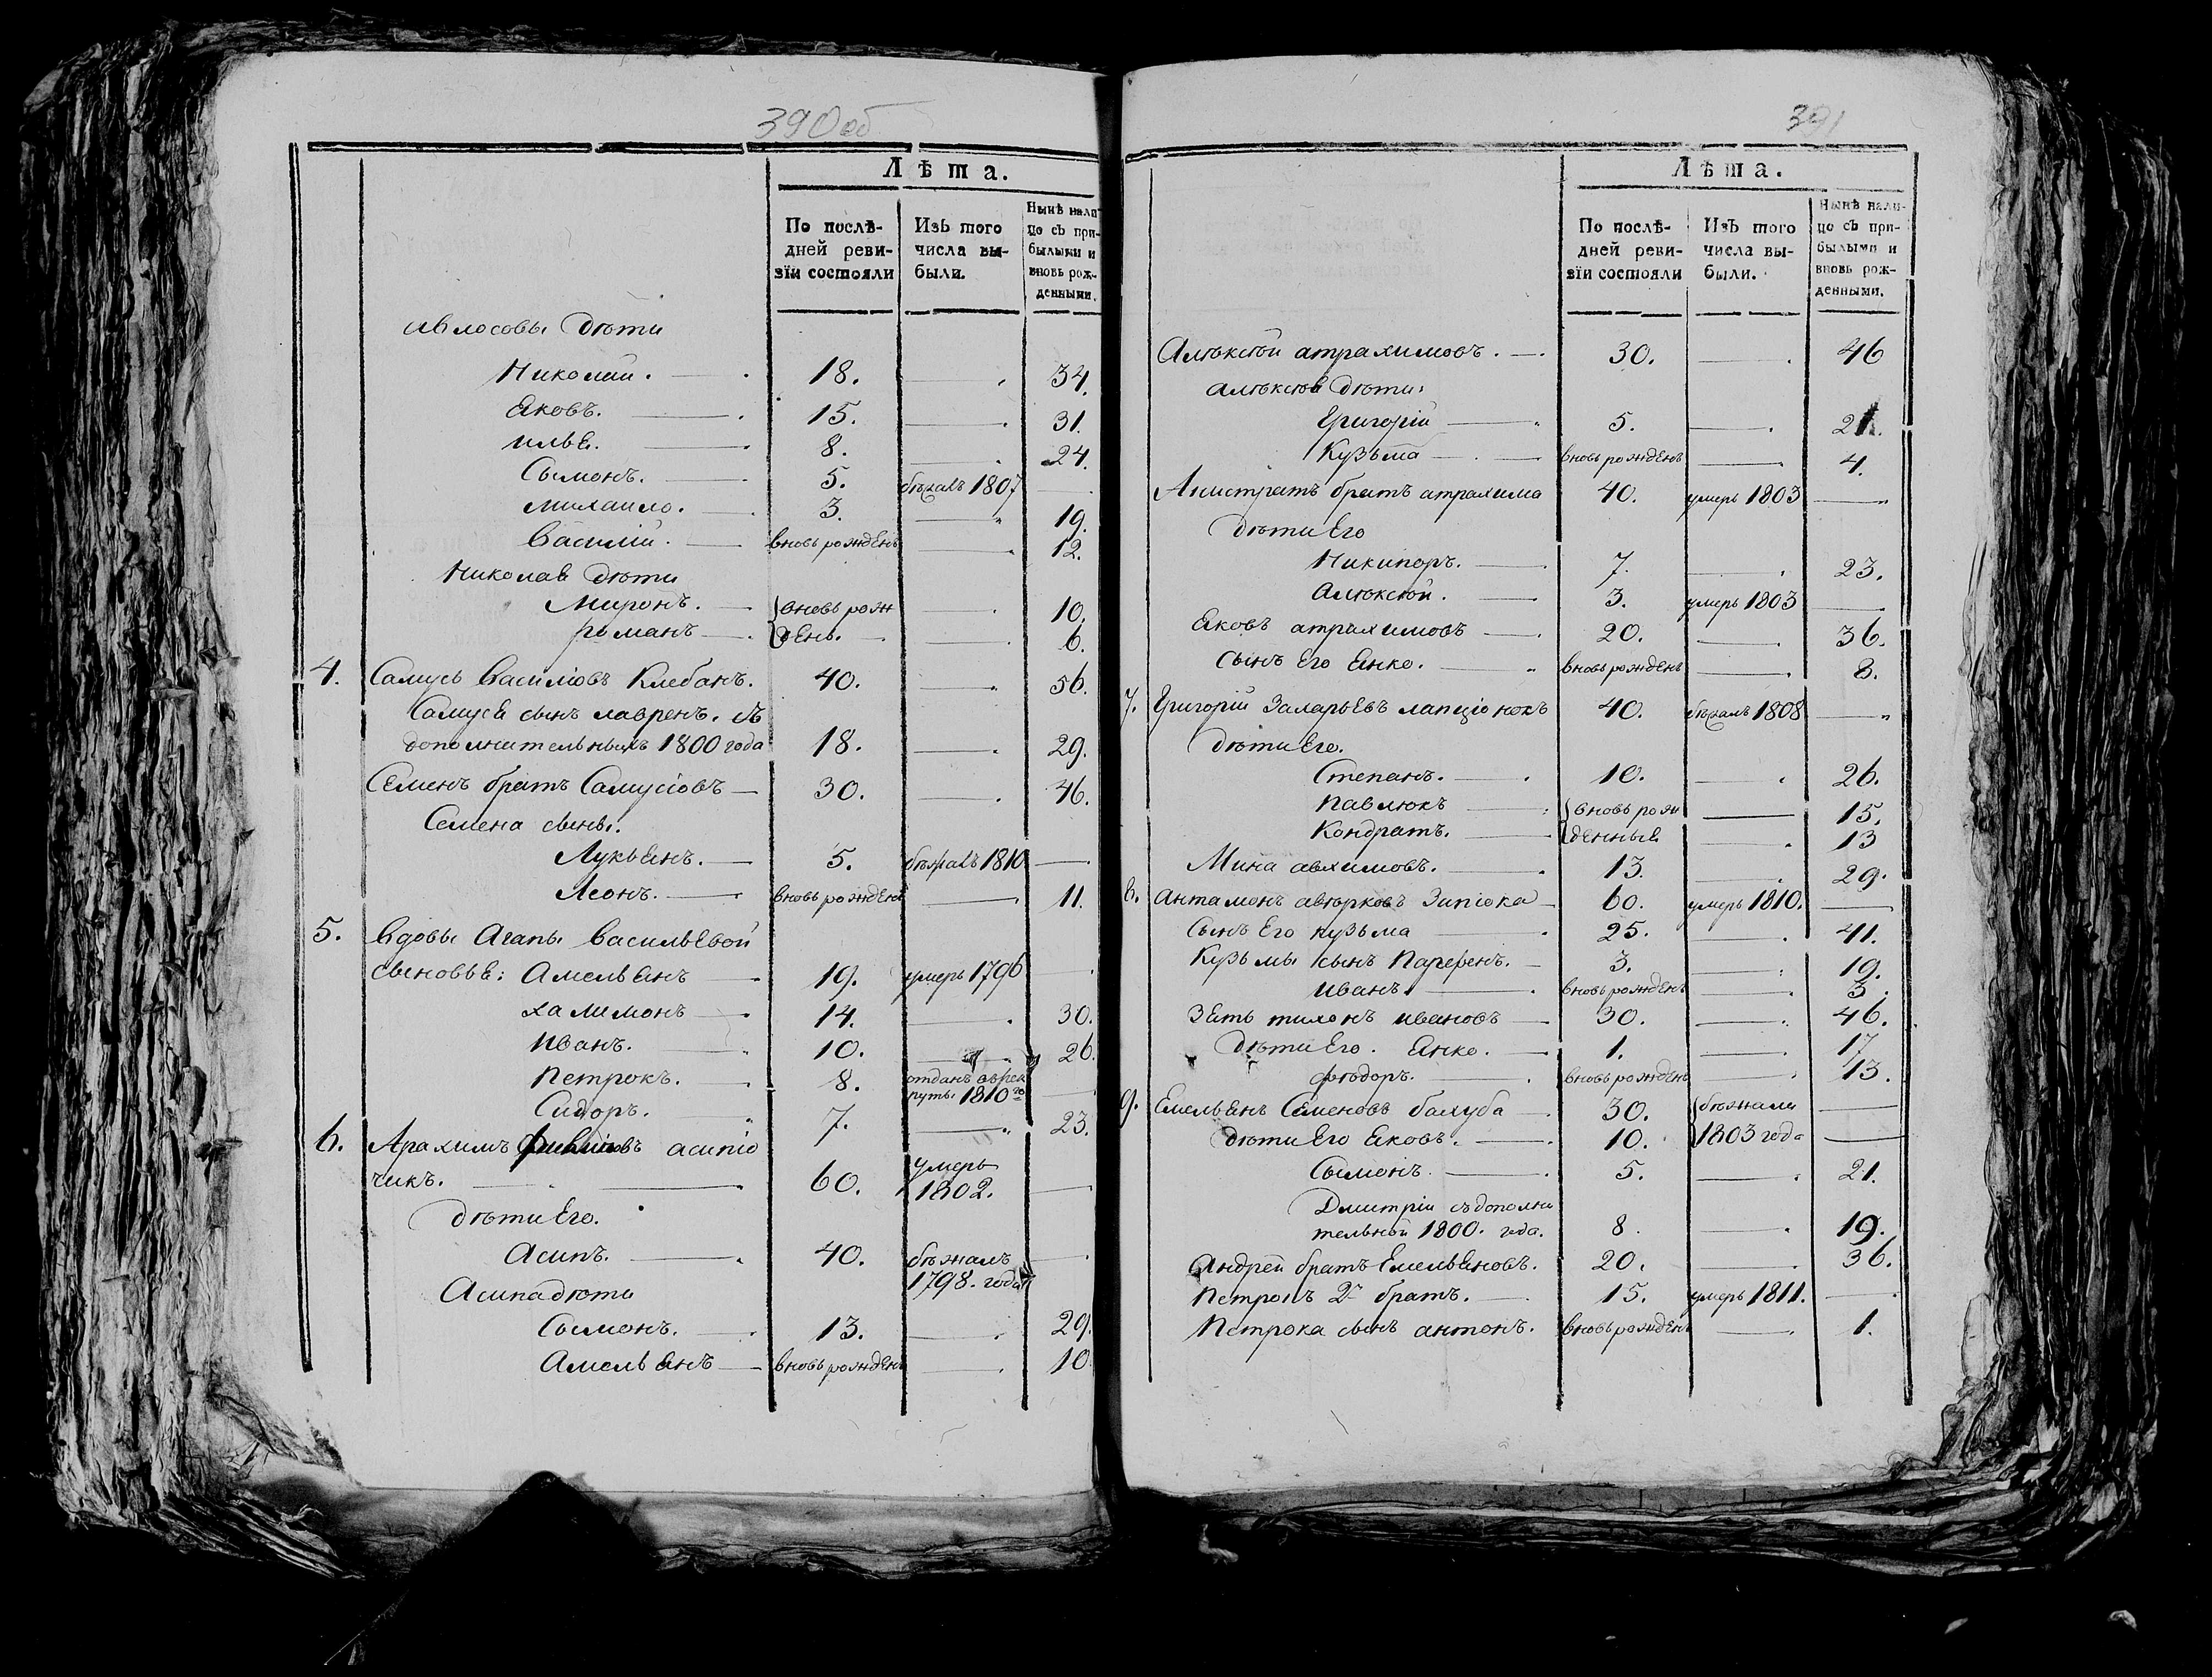 390 об
Лѣта.
По послѣ-
дней реви-
зіи состояли
Изъ того
числа вы-
были.
Нынѣ нали-
цо съ при-
былыми и
вновь рож-
денными.
Дѣти
Николай. 18. 34.
Яковъ. 15. 31.
илья. 8. 24.
Сымонъ. 5. бѣжалъ 1807
михаило. 3. 19.
Василій. вновь рожденъ 12.
Николая дѣти
Миронъ. вновь рож 10.
романъ денъ. 6.
4. Самусь Василіовъ Клебанъ. 40. 56.
Самуся сынъ лавренъ. съ
дополнительныхъ 1800 года 18. 29.
Семенъ братъ Самусіовъ 30. 46.
Семена сыны.
Лукьянъ. 5. бѣжалъ 1810
Леонъ. вновь рожденъ 11.
5. Вдовы Агапы Васильевой
сыновья: Амельянъ 19. умеръ 1796
халимонъ 14. 30.
Иванъ. 10. 26.
Петрокъ. 8. отданъ врек
руты 1810го
Сидоръ. 7. 23.
6. асипіо
чикъ. 60. умеръ
1802.
дѣти Его.
Асипъ. 40. бѣжалъ
1798. года
Асипа дѣти
Сымонъ. 13. 29.
Амельянъ вновь рожденъ 10
391
Лѣта.
По послѣ-
дней реви-
зіи состояли
Изъ того
числа вы-
были.
Нынѣ нали-
цо съ при-
былыми и
вновь рож-
денными.
Алѣксѣй атрахимовъ. 30. 46
алѣксѣя дѣти:
Григорій 5. 21.
Кузьма вновь рожденъ 4.
Анистратъ братъ атрахима 40. умеръ 1803
дѣти Его
Никипоръ. 7. 23.
алѣксѣй. 3. умеръ 1803
Яковъ атрахимовъ 20. 36.
Сынъ Его Янко. вновь рожденъ 8.
7. Григорій Захарьевъ лапціонокъ 40. бѣжалъ 1808
дѣти Его.
Степанъ. 10. 26.
Павлюкъ вновь рож 15.
Кондратъ. денныя 13
Мина авхимовъ. 13. 29.
8. антамонъ Запіока 60. умеръ 1810.
Сынъ Его кузьма 25. 41.
Кузьмы сынъ 3. 19.
иванъ. вновь рожденъ 3.
Зять тихонъ ивановъ 30. 46.
Дѣти Его. Янко. 1. 17
фѣдоръ. вновь рожденъ 13.
9. Емельянъ Семеновъ балуба 30. бѣжали
дѣти Его Яковъ. 10. 1803 года
Сымонъ. 5. 21.
Дмитрій съ дополни
тельной 1800. года. 8. 19.
андрей братъ Емельяновъ. 20. 36.
Петрокъ 2й братъ. 15. умеръ 1811.
Петрока сынъ антонъ. вновь рожденъ 1.